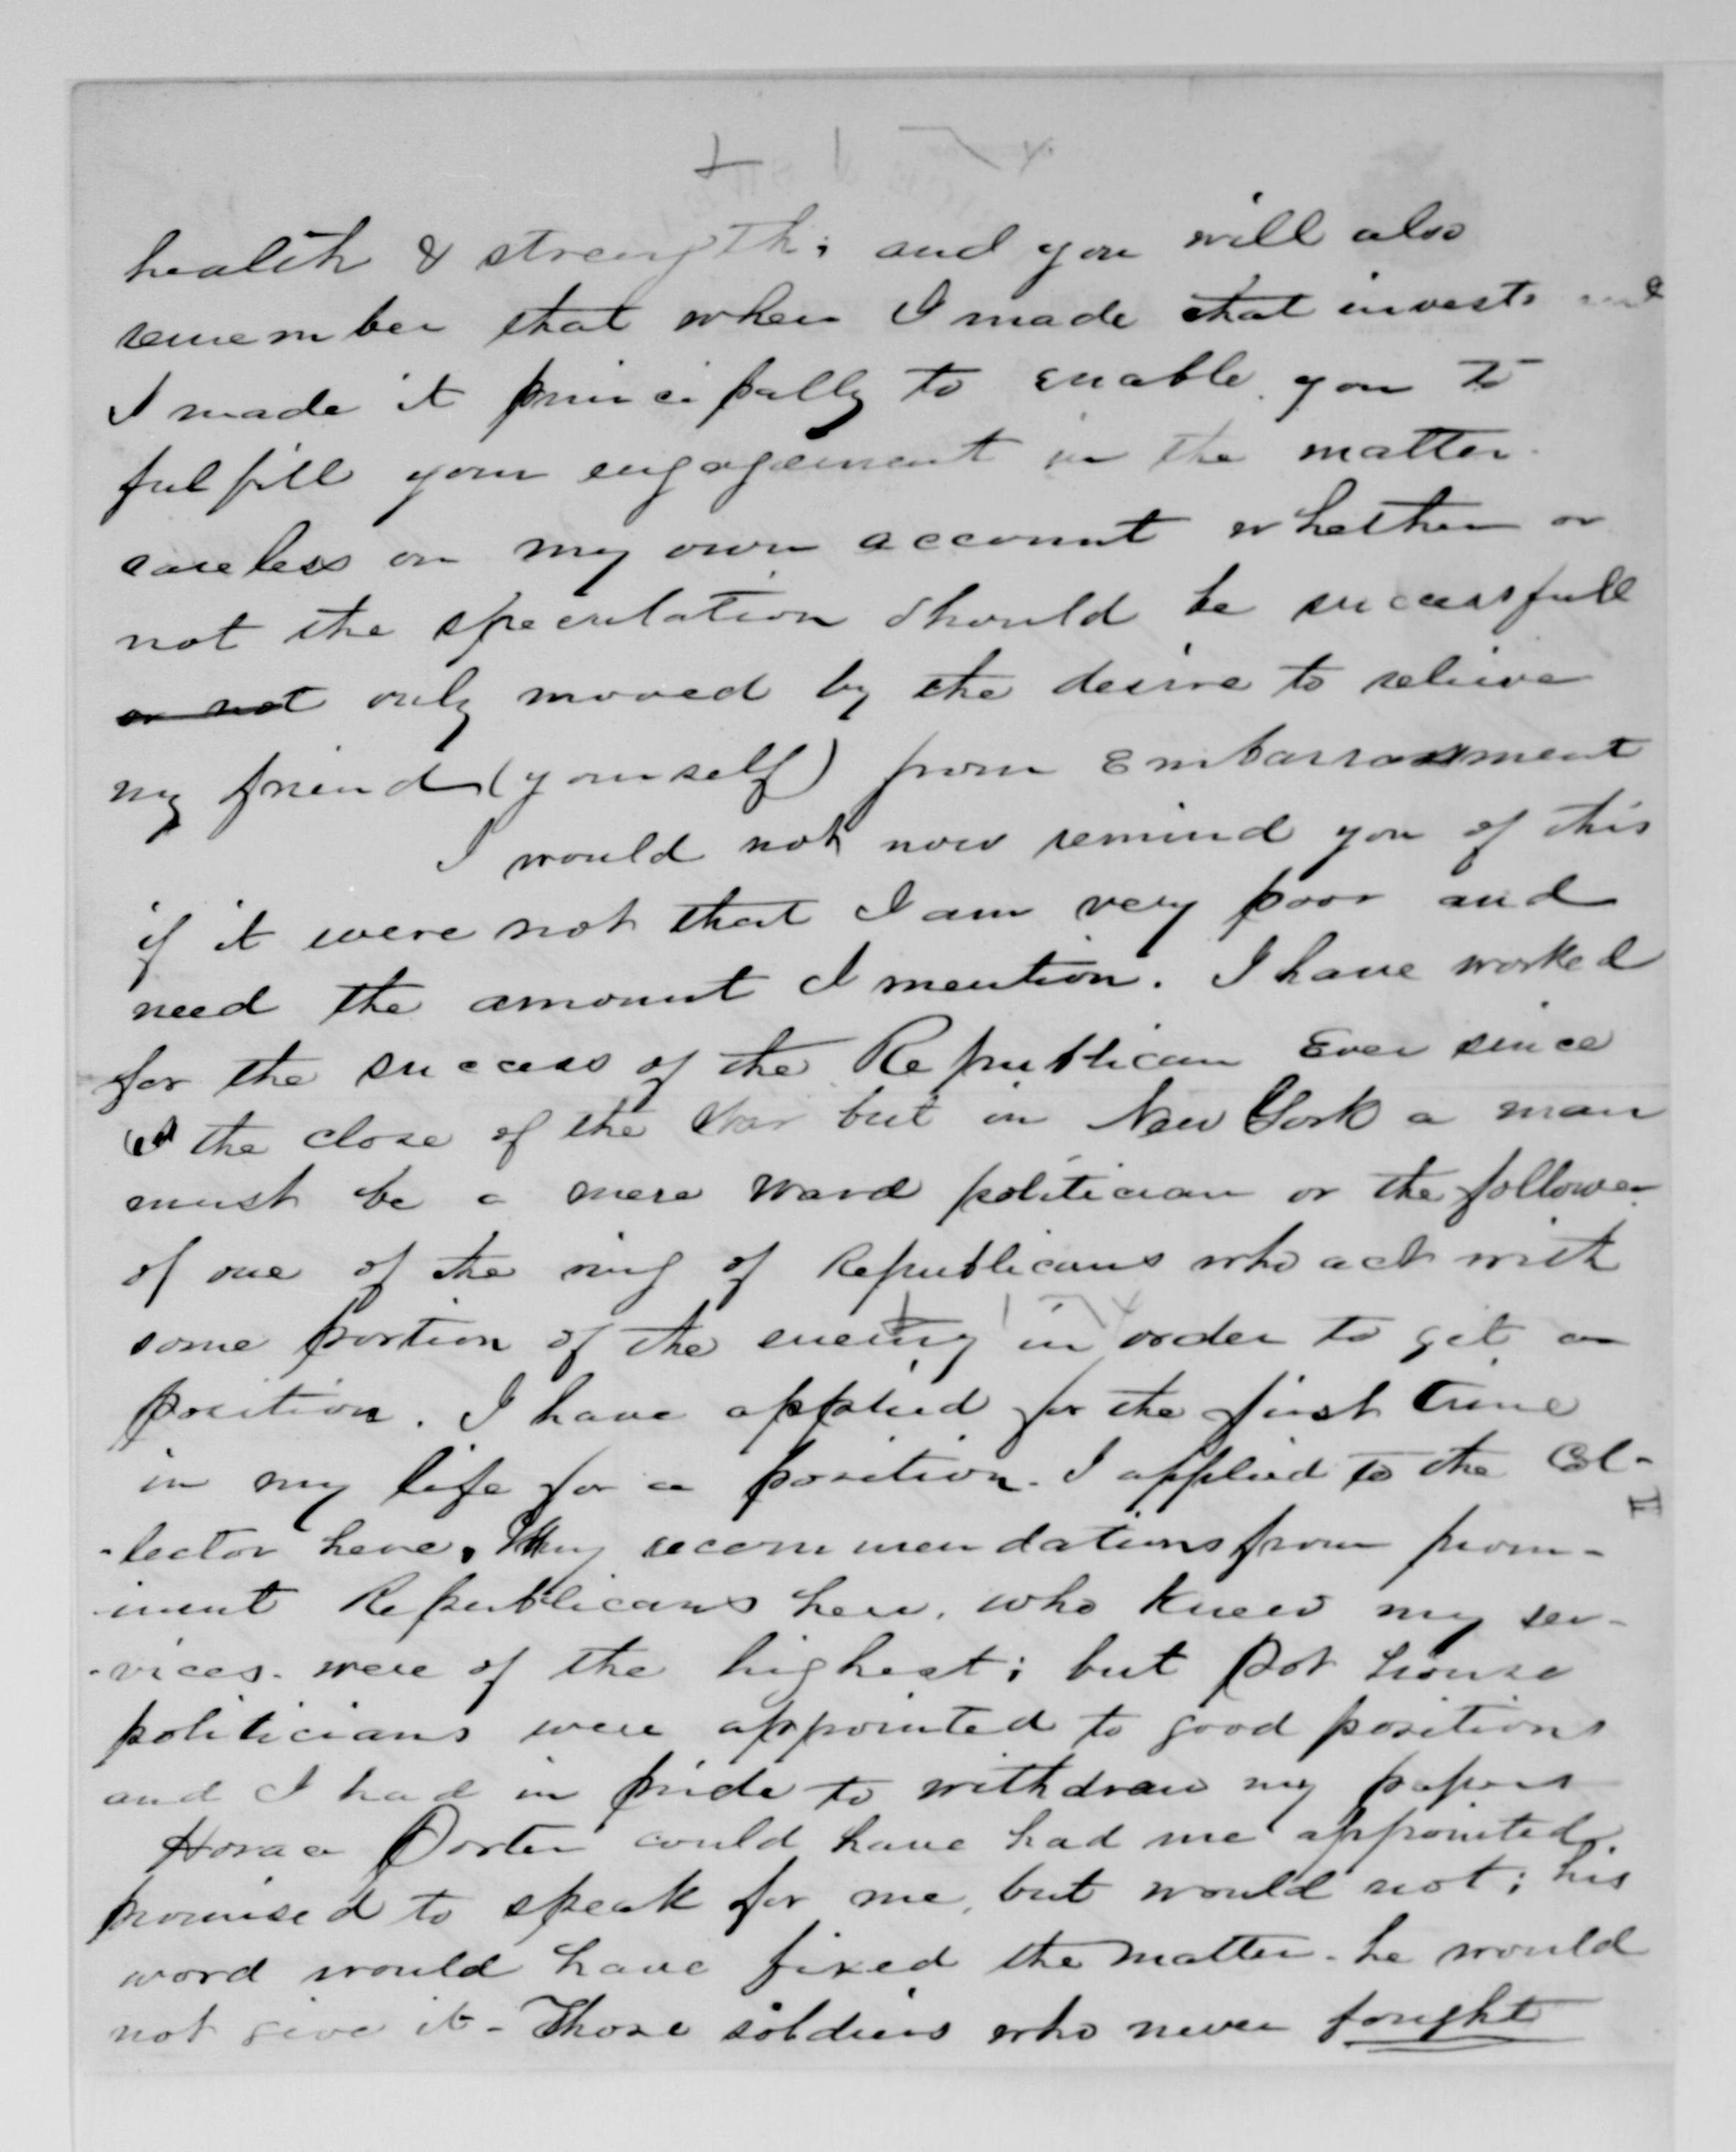 health & strength; and you will also
remember that when I made that invest
I made it principally to enable you to
fulfill your engagement in the matter.
careless on my own account whether or
not the speculation should be successfull
or not only moved by the desire to relieve
my friend (yourself) from Embarrassment
I would not now remind you of this
if it were not that I am very poor and
need the amount I mention. I have worked
for the success of the Republican Ever since
the close of the War but in New York a man
must be a mere ward politician or the follower
of one of the ring of Republicans who act with
some portion of the enemy in order to get a
position. I have applied for the first time
in my life for a position. I applied to the Col-
-lector here, My recommendations from prom-
-inent Republicans here, who knew my ser-
-vices. were of the highest; but Pot house
politicians were appointed to good positions
and I had in pride to withdraw my papers
Horace Porter could have had me appointed.
promised to speak for me, but would not; his
word would have fixed the matter. he would
not give it - Those soldiers who never fought